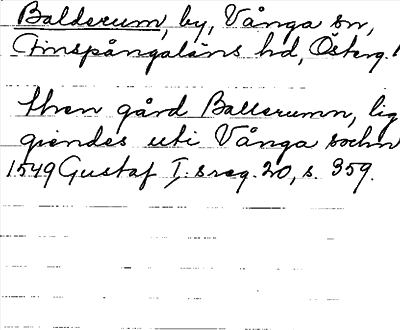 Balderum, by, Vånga sn,
Finspångaläns hd, Österg.
then gård Ballerumn, lig
giendes uti Vånga sochn
1549 Gustaf I:s reg. 20, s. 359.